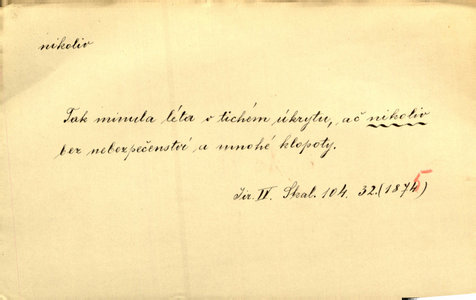 nikoliv
Tak minula léta v tichém úkrytu, ač nikoliv
bez nebezpečenství a mnohé klopoty.
Jir. IV. Skal. 104. 32. (1875)